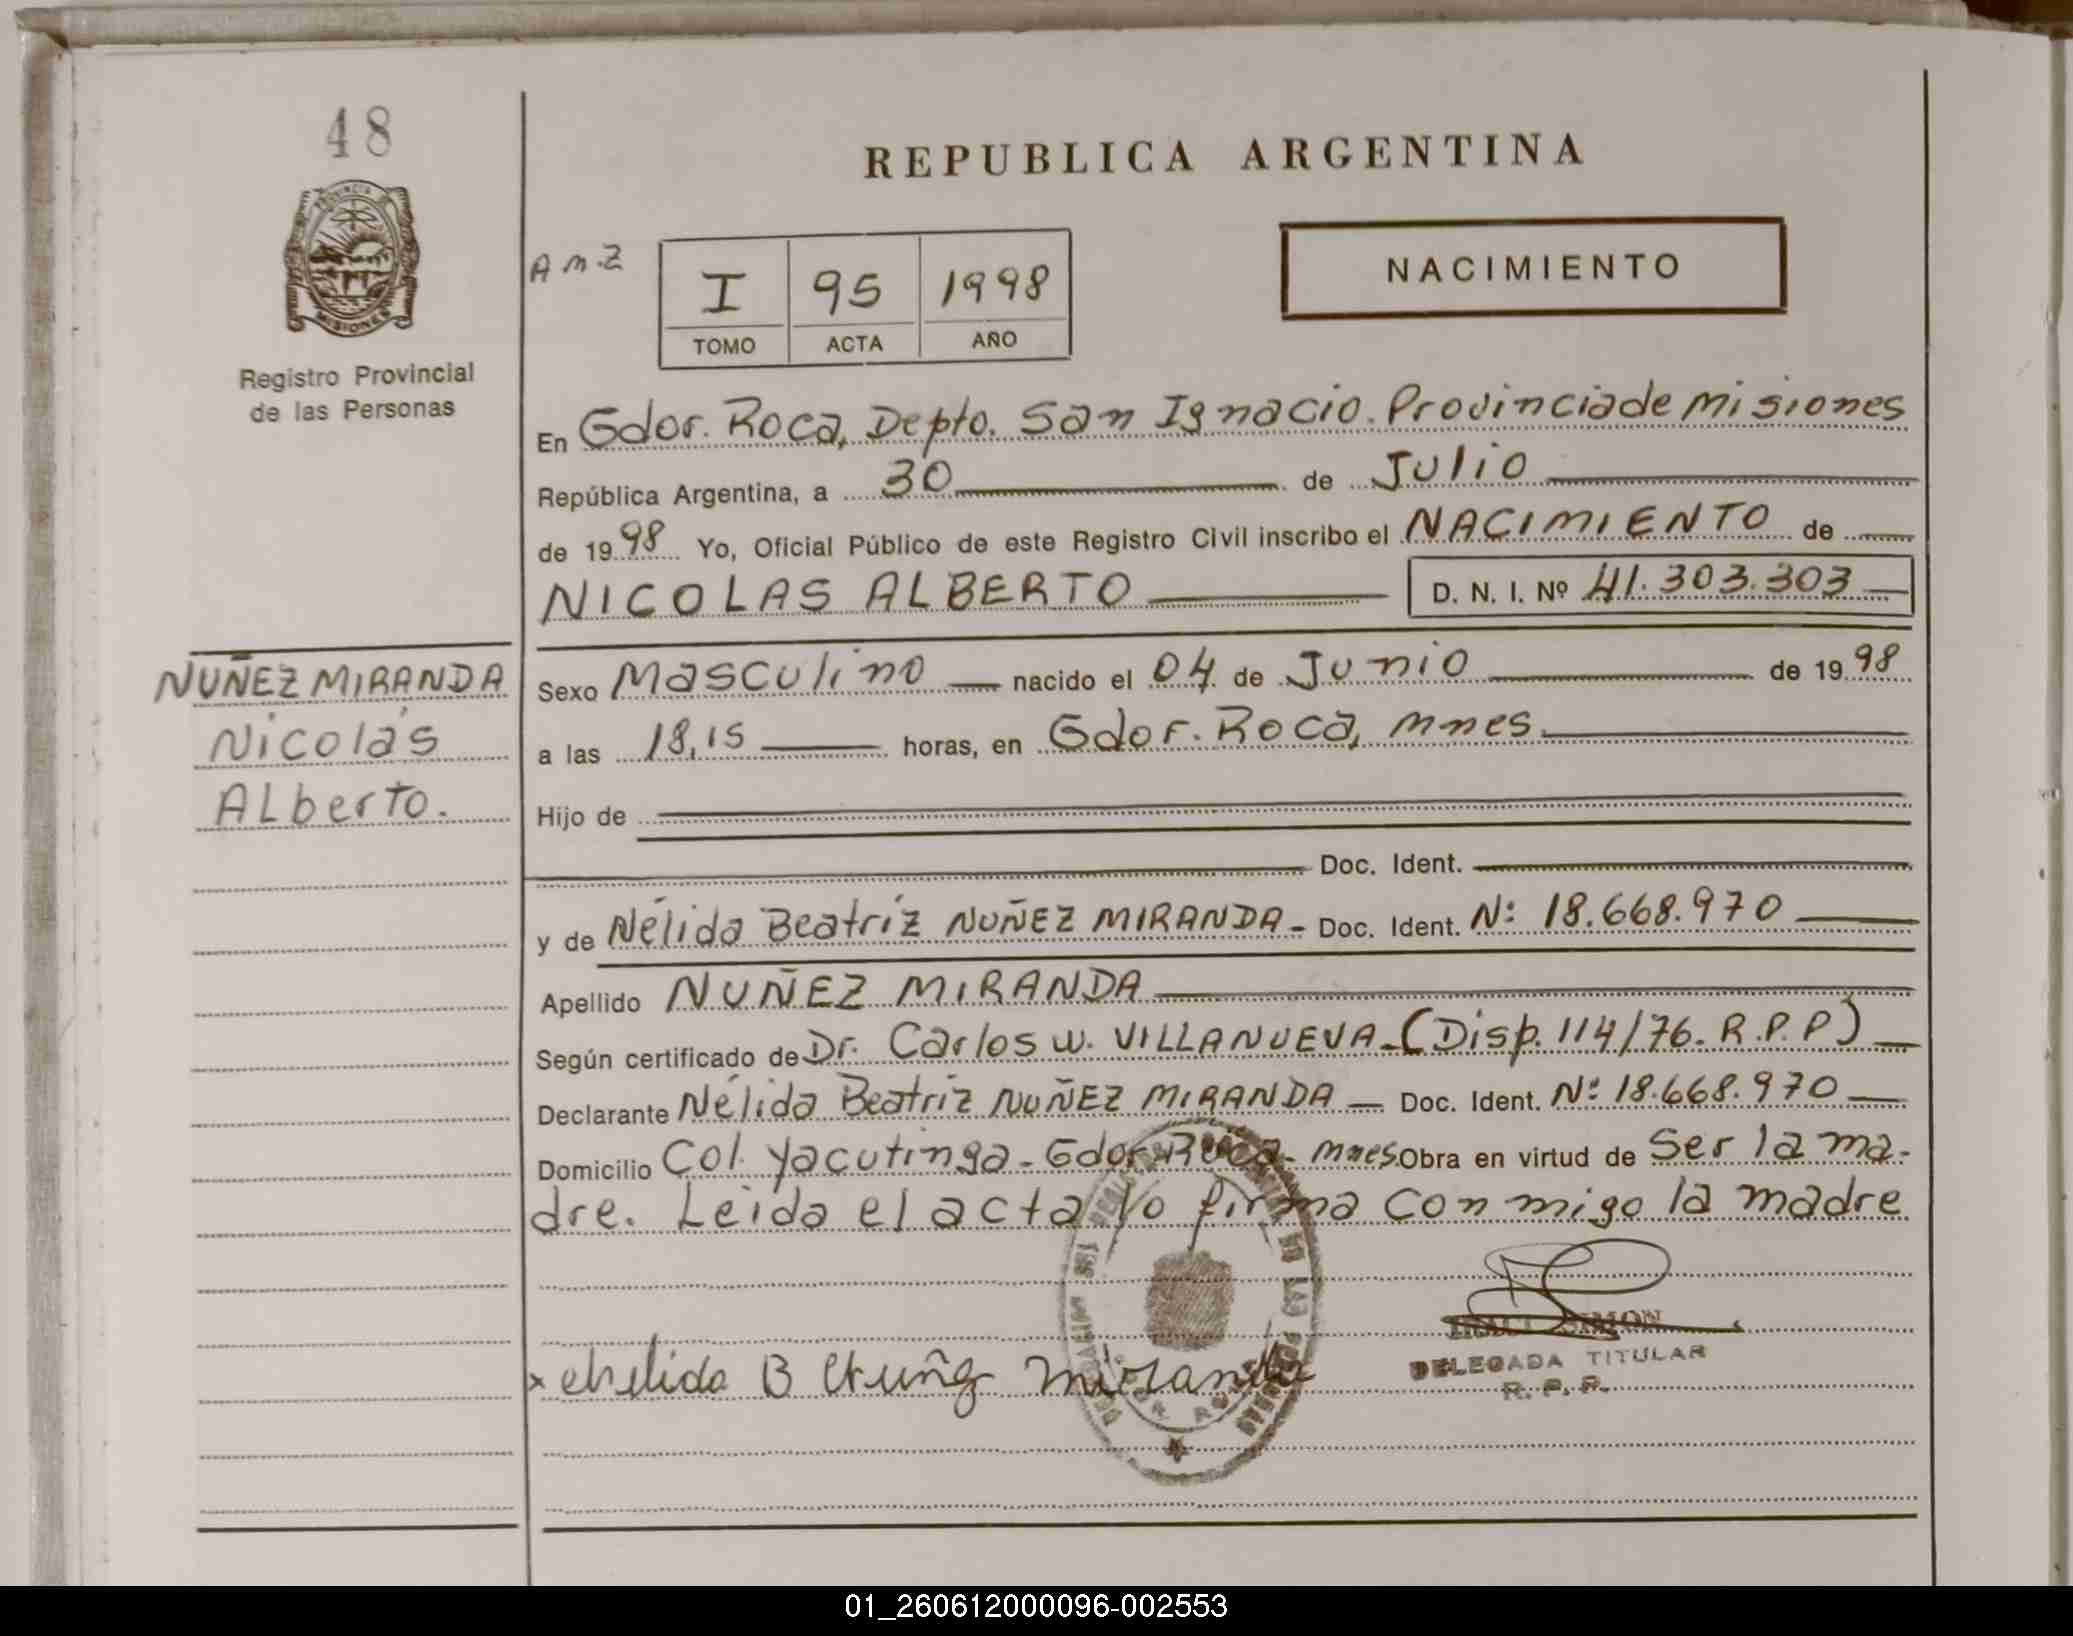 48
PROVINCIA DE
MISIONES
Registro Provincial
de las Personas
REPUBLICA ARGENTINA
A M.Z
I 95 1998
TOMO ACTA AÑO
NACIMIENTO
En Gdor. Roca, Depto. San Ignacio. Provincia de Misiones
República Argentina, a 30 de Julio
de 1998 Yo, Oficial Público de este Registro Civil inscribo el NACIMIENTO de
NICOLAS ALBERTO D. N. I. Nº 41.303.303
NUÑEZ MIRANDA
Nicolás
Alberto.
Sexo Masculino nacido el 04 de Junio de 1998
a las 18,15 horas, en Gdor. Roca, Mnes
Hijo de
Doc. Ident.
y de Nélida Beatríz NUÑEZ MIRANDA- Doc. Ident. Nº 18.668.970
Apellido NUÑEZ MIRANDA
Según certificado de Dr. Carlos W. VILLANUEVA-(Disp. 114/76. R.P.P)
Declarante Nélida Beatríz NUÑEZ MIRANDA Doc. Ident. Nº 18.668.970
Domicilio Col. Yacutinga- Gdor. Roca- Mnes. Obra en virtud de Ser la ma-
dre. Leida el acta lo firma conmigo la madre
SIMON
DELEGADA TITULAR
R. P. P.
x Nelida B Nuñez Miranda
01_260612000096-002553